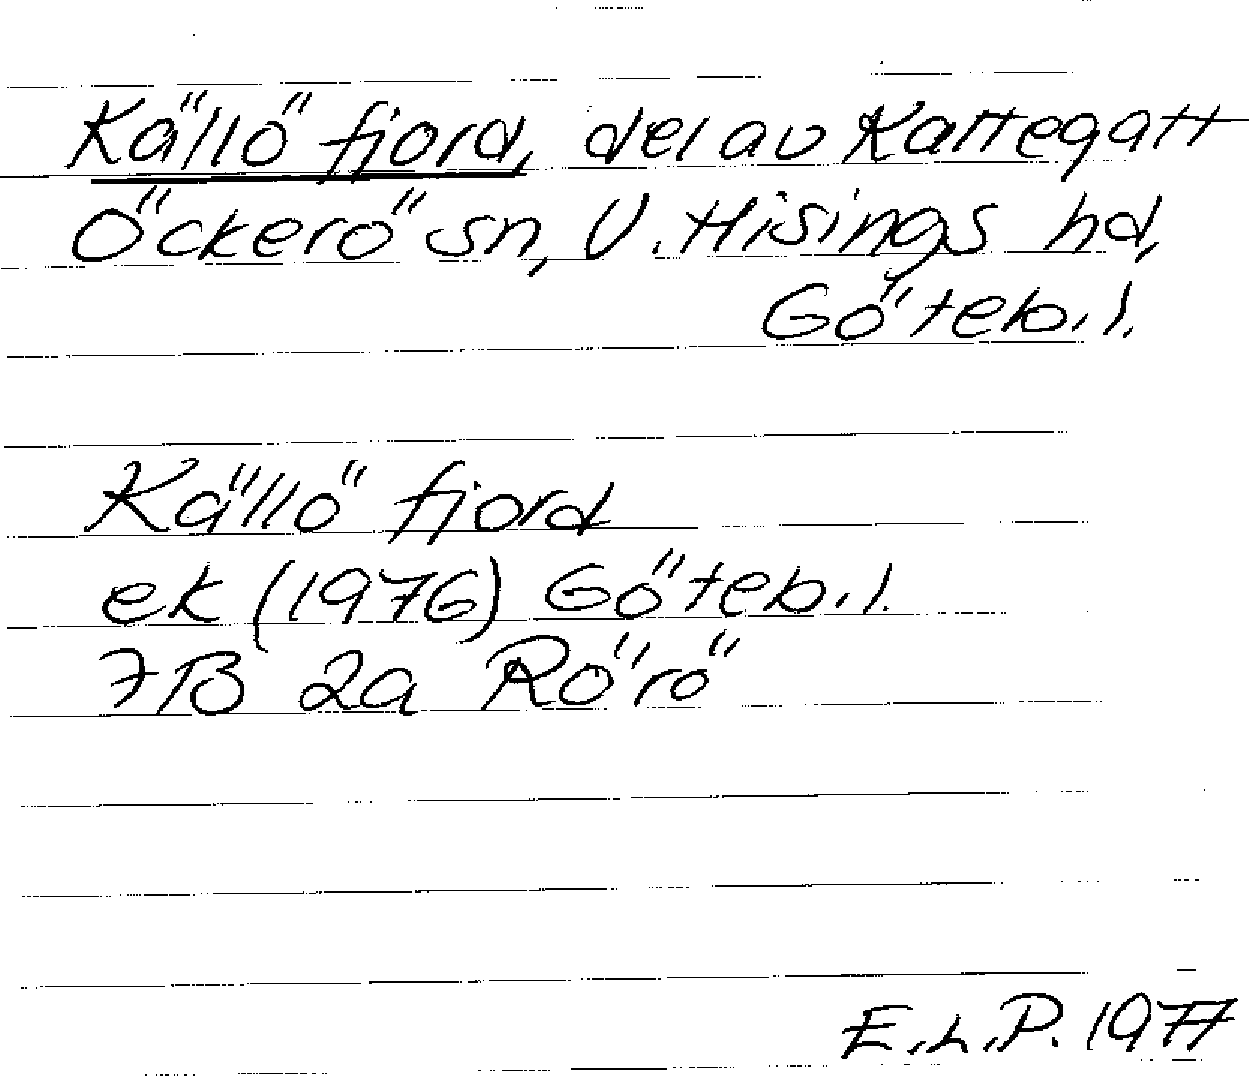 Källö fjord, del av Kattegatt
Öckerö sn, V. Hisings hd,
Göteb. l.
Källö fjord
ek (1976) Göteb. l.
7B 2a Rörö
E.L.P. 1977